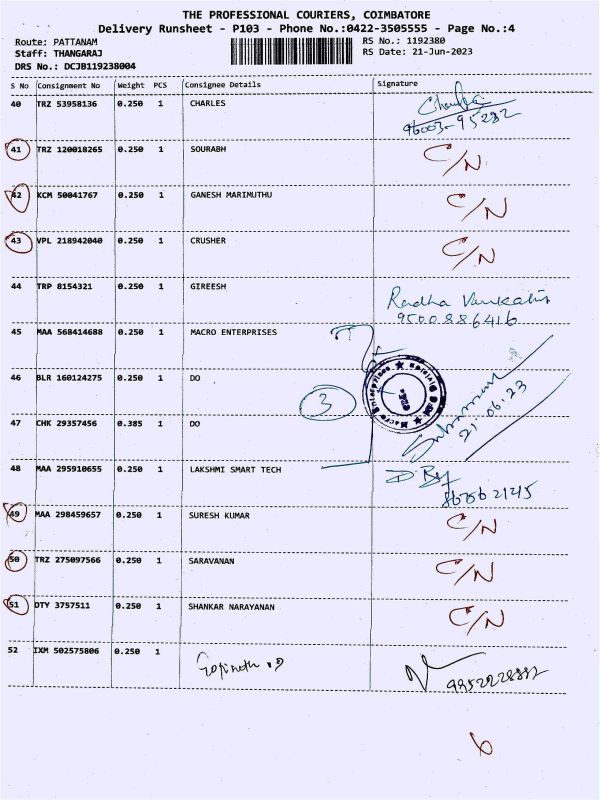 THE PROFESSIONAL COURIERS, COIMBATORE
Delivery Runsheet - P103 - Phone No.:0422-3505555 - Page No.:4
Route: PATTANAM RS No.: 1192380
Staff: THANGARAJ RS Date: 21-Jun-2023
DRS No.: DCJB119238004
S No Consignment No Weight PCS Consignee Details Signature
40 TRZ 53958136 0.250 1 CHARLES
96003-95232
41 TRZ 120018265 0.250 1 SOURABH C/N
42 KCM 50041767 0.250 1 GANESH MARIMUTHU C/N
43 VPL 218942040 0.250 1 CRUSHER C/N
44 TRP 8154321 0.250 1 GIREESH Radha Venkatis
9500886416
45 MAA 568414688 0.250 1 MACRO ENTERPRISES
46 BLR 160124275 0.250 1 DO 3 Macro Enterprises
47 CHK 29357456 0.385 1 DO 21.06.23
48 MAA 295910655 0.250 1 LAKSHMI SMART TECH
49 MAA 298459657 0.250 1 SURESH KUMAR C/N
50 TRZ 275097566 0.250 1 SARAVANAN C/N
51 DTY 3757511 0.250 1 SHANKAR NARAYANAN C/N
52 IXM 502575806 0.250 1 Gopinath
6